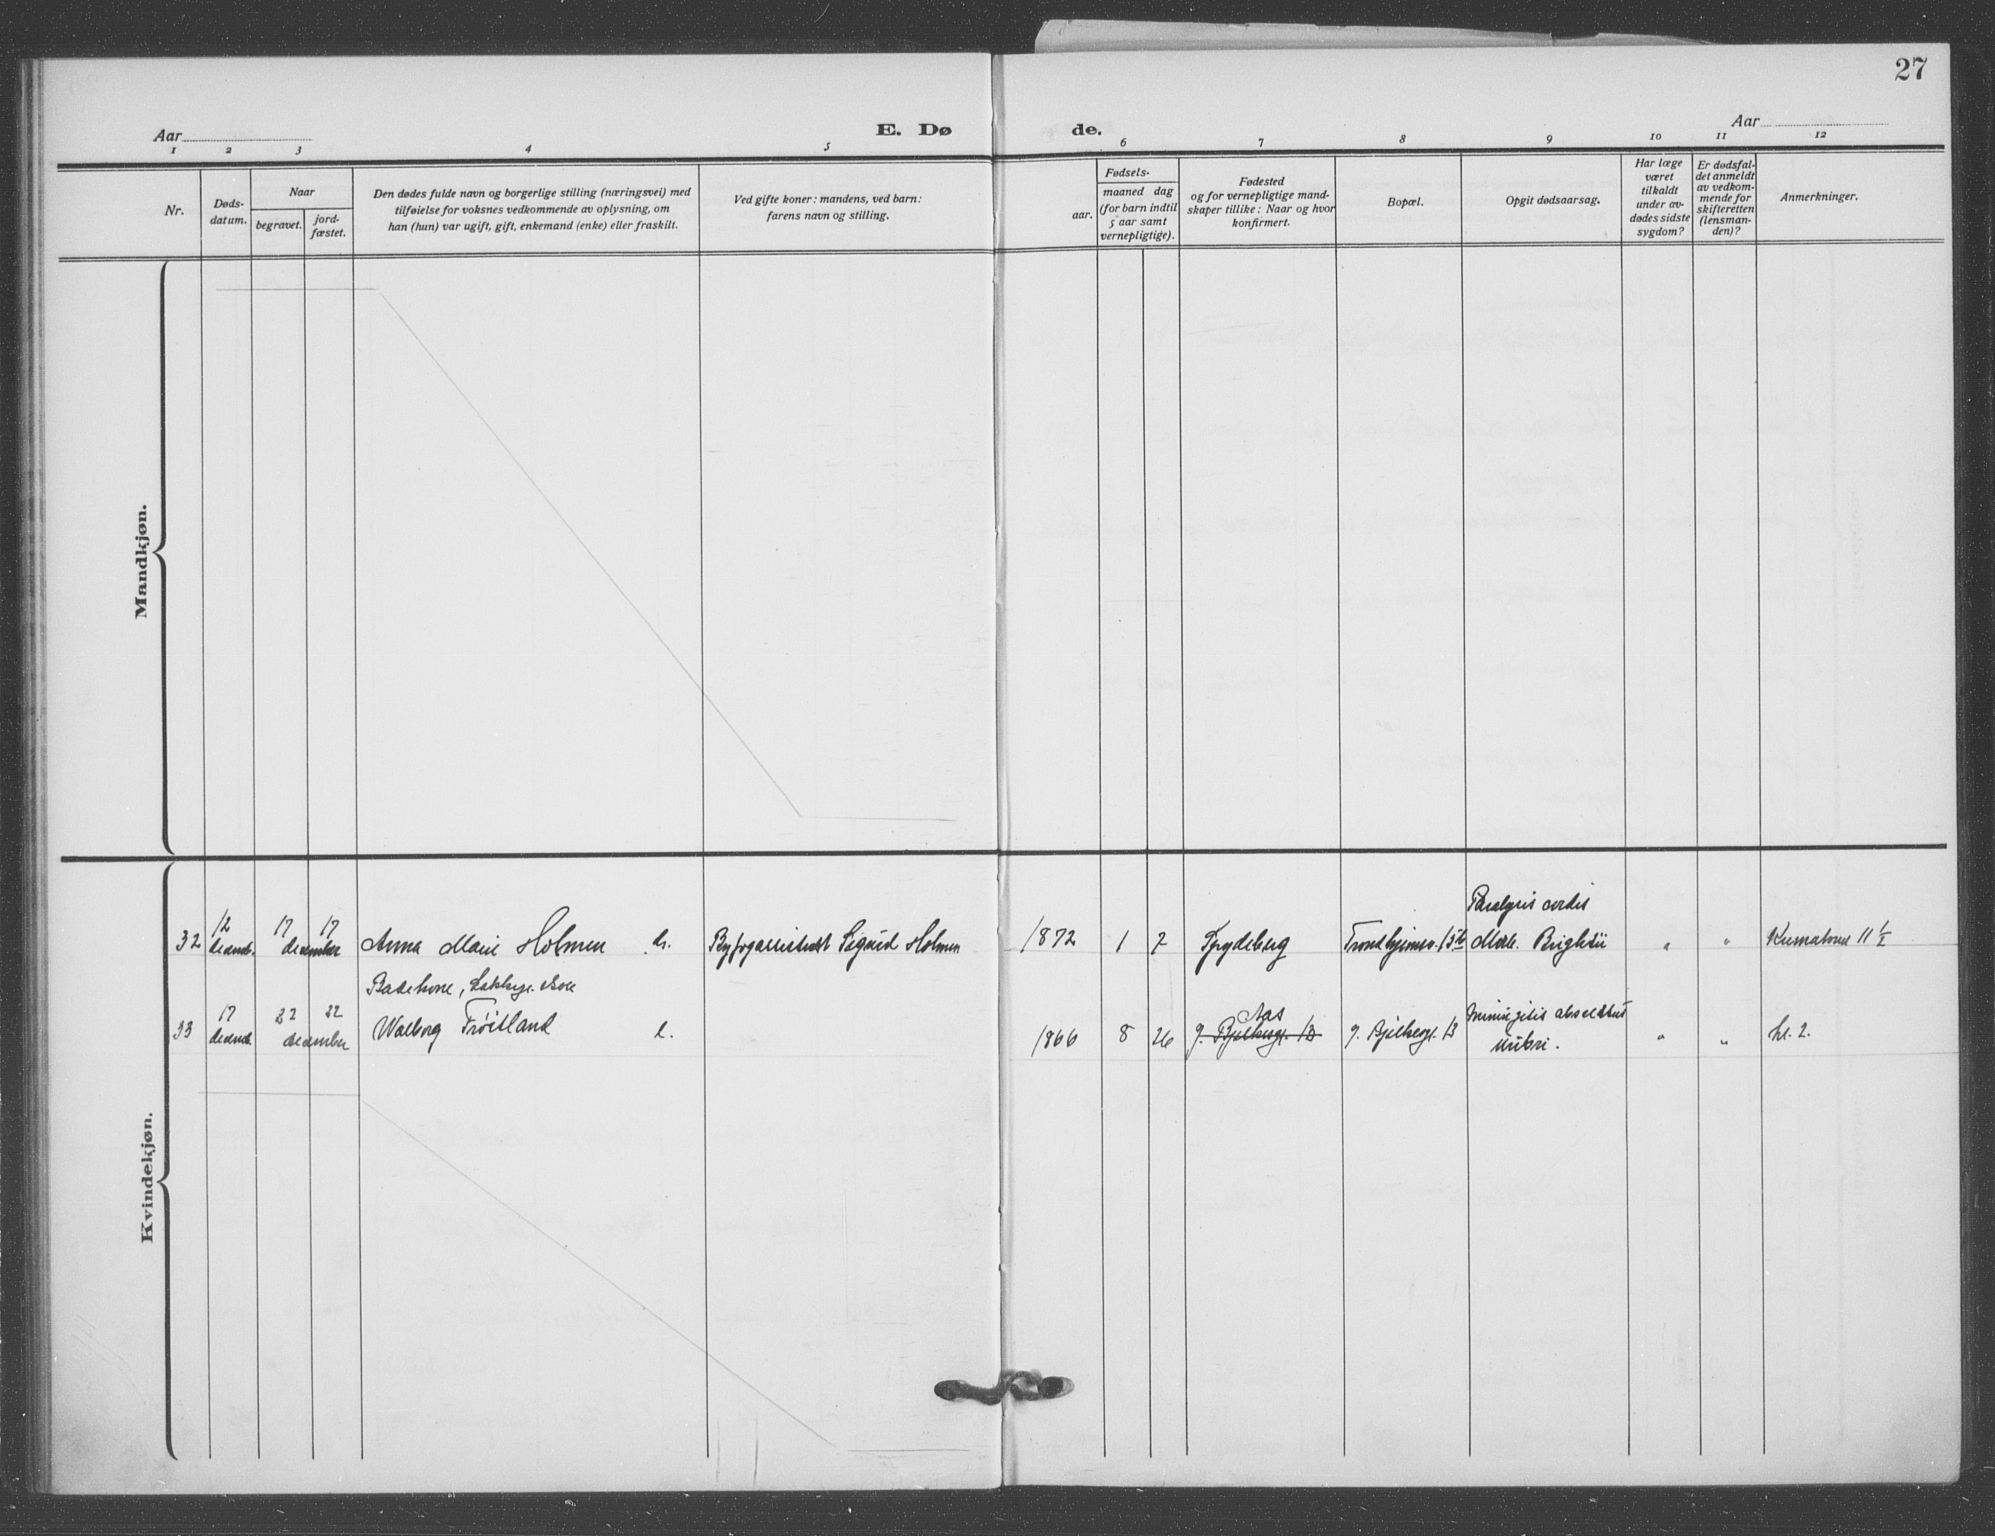 27
Aar
E. Dø
de.
Aar
1 2 3 4 5 6 7 8 9 10 11 12
Nr.
Døds-
datum.
Naar
begravet.
jord-
fæstet.
Den dødes fulde navn og borgerlige stilling (næringsvei) med
tilføielse for voksnes vedkommende av oplysning, om
han (hun) var ugift, gift, enkemand (enke) eller fraskilt.
Ved gifte koner: mandens, ved barn:
farens navn og stilling.
Fødsels-
aar.
maaned dag
(for barn indtil
5 aar samt
vernepligtige).
Fødested
og for vernepligtige mand-
skaper tillike: Naar og hvor
konfirmert.
Bopæl.
Opgit dødsaarsag.
Har læge
været
tilkaldt
under av-
dødes sidste
sygdom?
Er dødsfal-
det anmeldt
av vedkom-
mende for
skifteretten
(lensman-
den)?
Anmerkninger.
Mandkjøn.
Kvindekjøn.
12 17 17 Paralysis cordis
32 decemb. december Anna Marie Holmen Sigurd Holmen 1872 1 7 Trondhjemsv. Morb. Brightii " "
Badekone,
17 22 22 Aas
33 decemb. december Walborg Trøitland e. 1866 8 26 g. 13 g. 13 " "